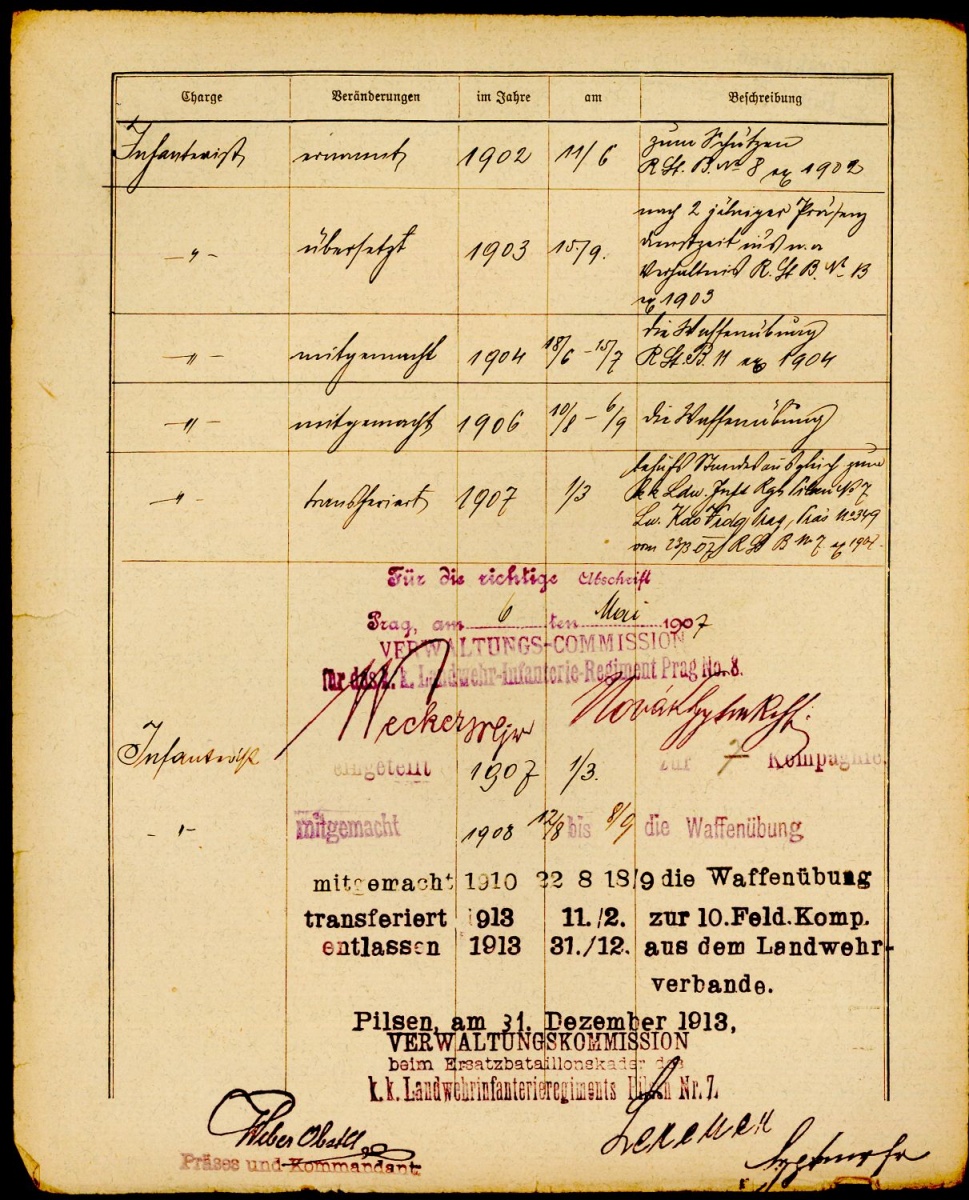 Charge Veränderungen im Jahre am Beschreibung
Infanterist ernannt 1902 11/6 zum Schützen
R. St. B. No 8 ex 1902
nach 2 jähriger Präsenz
-"- übersetzt 1903 15./9. dienstzeit ins n. a
Verhältnis R. St. B. No 13
ex 1903
-"- mitgemacht 1904 18/6 - 15/7 die Waffenübung
R. St. B. 11 ex 1904
-"- mitgemacht 1906 10/8 - 6/9 die Waffenübung
behufs Standesausgleich zum
-"- transferiert 1907 1/3 k.k. Ldw. Inft Rgt Pilsen No 7
Lw. Kdo Prag, Präs No 2349
vom R St B No 7 ex 1907.
Für die richtige Abschrift
Prag, am 6 ten Mai 1907
VERWALTUNGS-COMMISSION
für das k. k. Landwehr-Infanterie-Regiment Prag No. 8.
Wecker Mjr Novák
Infanterist eingeteilt 1907 1/3. zur 7 Kompagnie.
-"- mitgemacht 1908 12/8 bis 8/9 die Waffenübung
mitgemacht 1910 22 8 18/9 die Waffenübung
transferiert 1913 11./2. zur 10. Feld. Komp.
entlassen 1913 31./12. aus dem Landwehr-
verbande.
Pilsen, am 31. Dezember 1913,
VERWALTUNGSKOMMISSION
beim Ersatzbataillonskader des
k. k. Landwehrinfanterieregiments Pilsen Nr. 7.
Weber Obstlt
Präses und Kommandant